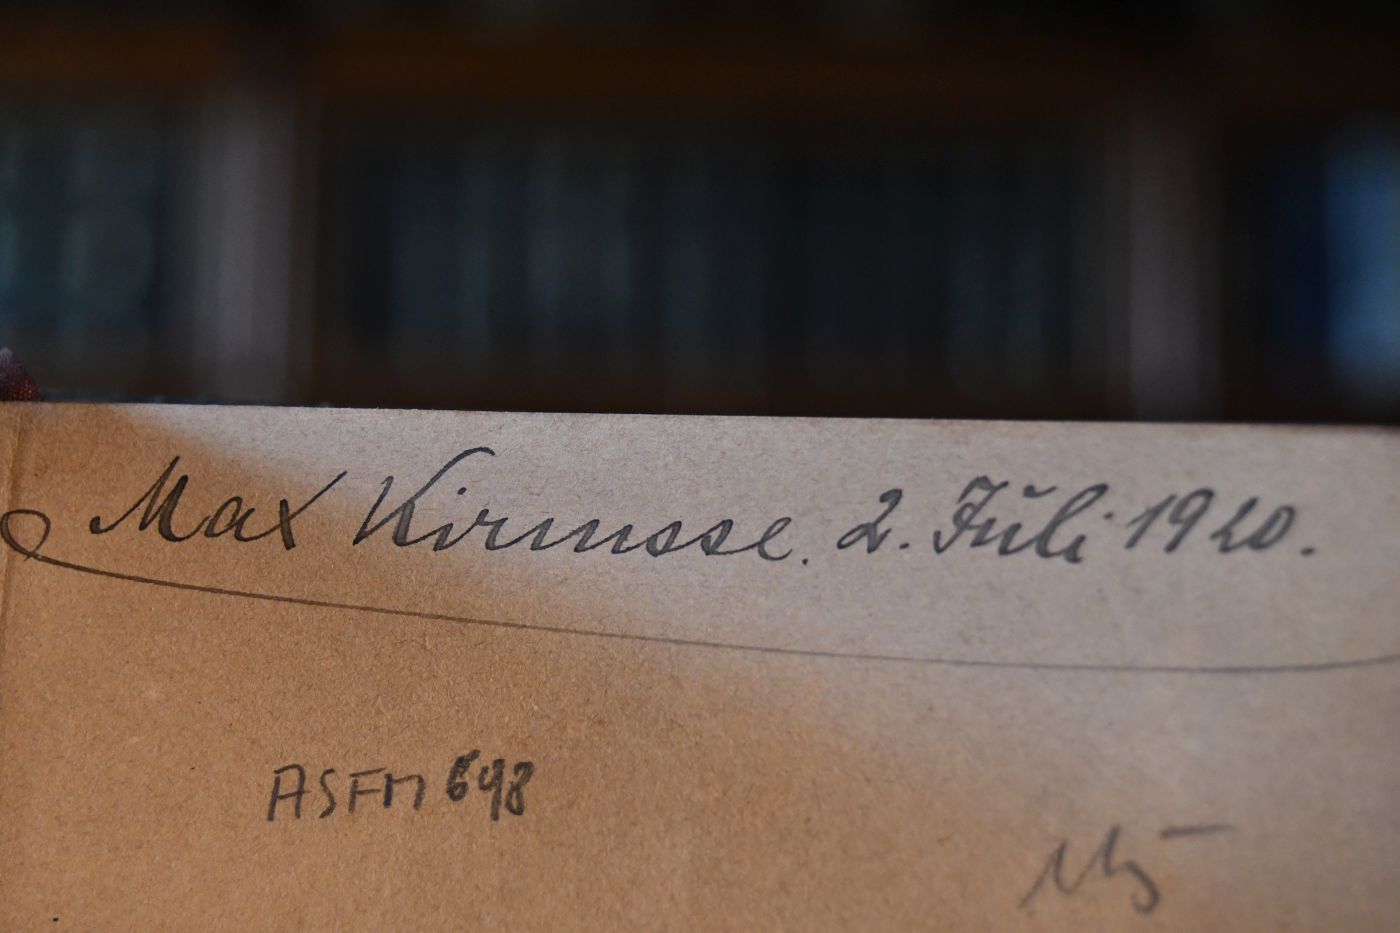 Max Kirmsse. 2. Juli 1920.
ASFM 698